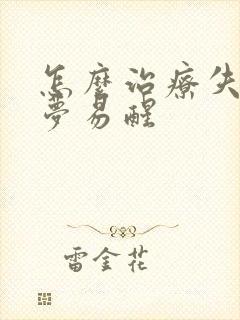 怎麼治療失
夢易醒
雷金花